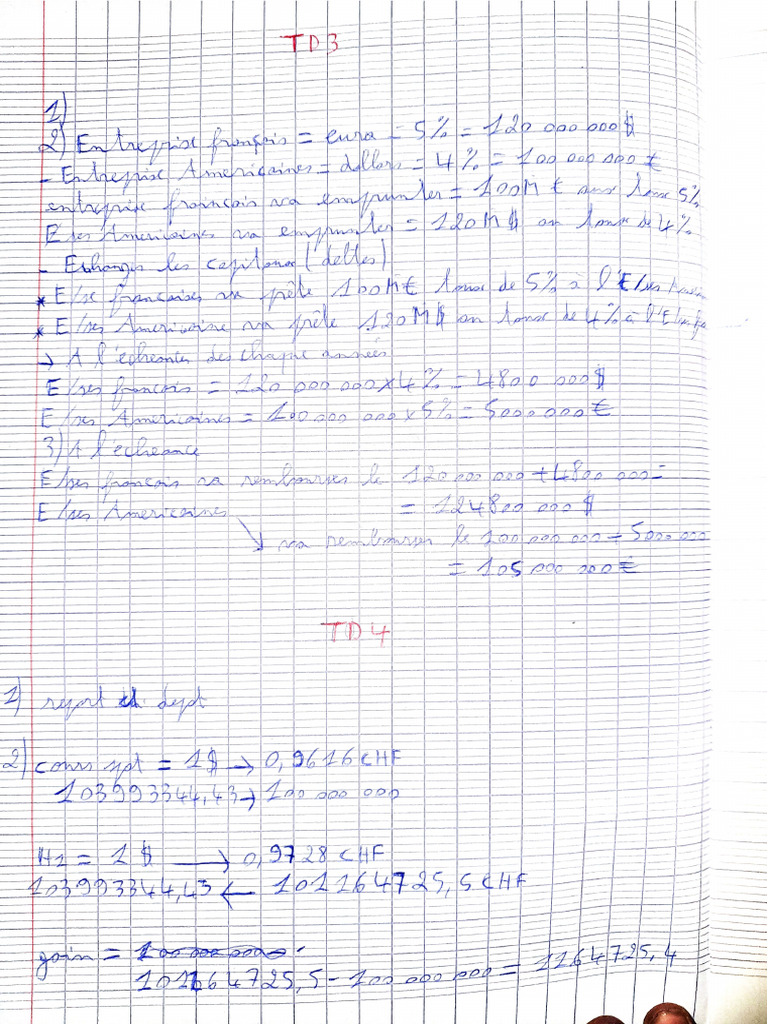 TD3
1)
2) Entreprise français = euro = 5% = 120 000 000 $
- Entreprise Americaines = dollars = 4% = 100 000 000 €
entreprise francais va emprunter = 100M € aux taux 5%
E/ses Americaines va emprunter = 120M $ au taux de 4%
- Echanges les capitaux (dettes)
* E/se françaises va prête 100M€ taux de 5% à l'E/ses
* E/ses Americaine va prête 120M$ au taux de 4% à l'E/ses
→ A l'écheantes des chaque années
E/ses français = 120 000 000 x 4% = 4800 000 $
E/ses Americaines = 100 000 000 x 5% = 5000000 €
3) A l'echeance
E/ses francais va rembourses le 120 000 000 + 4800 000 =
E/ses Americaines = 124800 000 $
va rembourser le 100 000 000 + 5000 000
= 105 000 000 €
TD4
1) report dept
2) cours spt = 1$ → 0,9616 CHF
103993344,43 → 100 000 000
H1 = 1 $ → 0,9728 CHF
103993344,43 ← 101164725,5 CHF
gain = 100 000 000
101164725,5 - 100 000 000 = 1164725,4